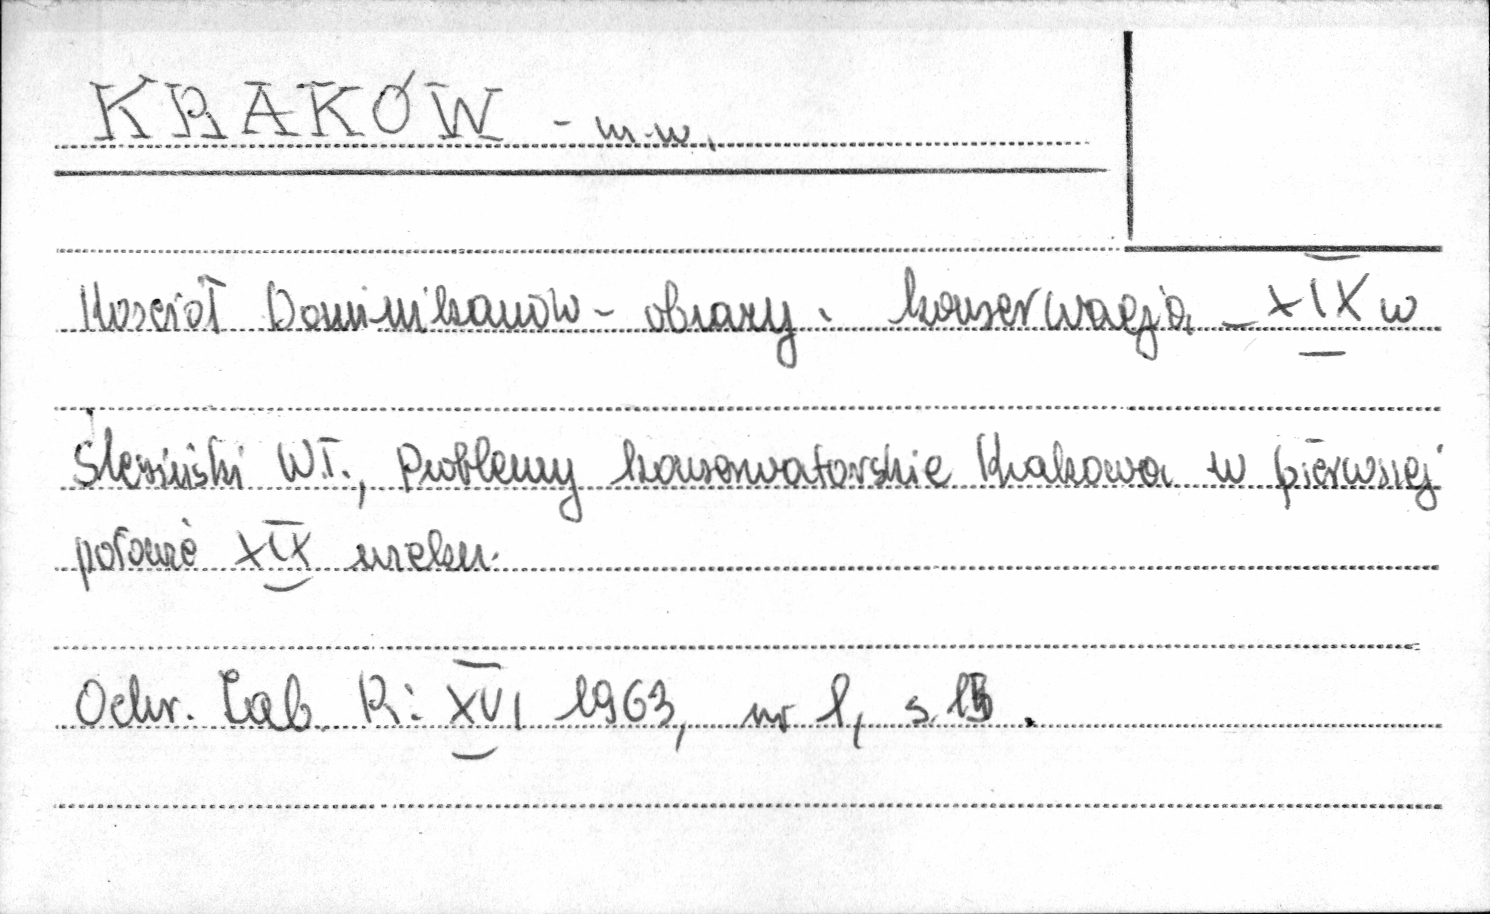 KRAKÓW - m.w.
Kosciół Dominikanów - obrazy. konserwacja - XIX w
Ślesiński Wł., Problemy konserwatorskie Krakowa w pierwszej
połowie XIX wieku.
Ochr. Zab. R: XVI 1963, nr 1, s. 15.